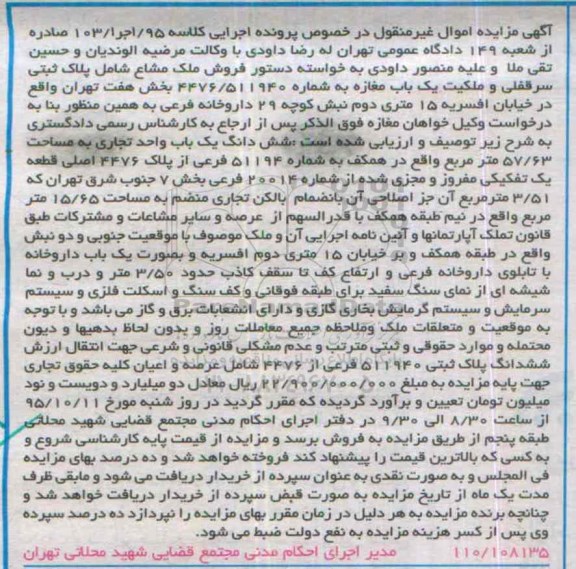 آگهی مزایده اموال غیرمنقول در خصوص پرونده اجرایی کلاسه ۹۵/اجرا/۱۰۳ صادره
از شعبه ۱۴۹ دادگاه عمومی تهران له رضا داودی با وکالت مرضیه الوندیان و حسین
تقی ملا و علیه منصور داودی به خواسته دستور فروش ملک مشاع شامل پلاک ثبتی
سرقفلی و ملکیت یک باب مغازه به شماره ۴۴۷۶/۵۱۱۹۴۰ بخش هفت تهران واقع
در خیابان افسریه ۱۵ متری دوم نبش کوچه ۲۹ داروخانه فرعی به همین منظور بنا به
درخواست وکیل خواهان مغازه فوق الذکر پس از ارجاع به کارشناس رسمی دادگستری
به شرح زیر توصیف و ارزیابی شده است :شش دانگ یک باب واحد تجاری به مساحت
۵۷/۶۳ متر مربع واقع در همکف به شماره ۵۱۱۹۴ فرعی از پلاک ۴۴۷۶ اصلی قطعه
یک تفکیکی مفروز و مجزی شده از شماره ۲۰۰۱۴ فرعی بخش ۷ جنوب شرق تهران که
۳/۵۱ مترمربع آن جز اصلاحی آن بانضمام بالکن تجاری منضم به مساحت ۱۵/۶۵ متر
مربع واقع در نیم طبقه همکف با قدرالسهم از عرصه و سایر مشاعات و مشترکات طبق
قانون تملک آپارتمانها و آئین نامه اجرایی آن و ملک موصوف با موقعیت جنوبی و دو نبش
واقع در طبقه همکف و بر خیابان ۱۵ متری دوم افسریه و بصورت یک باب داروخانه
با تابلوی داروخانه فرعی و ارتفاع کف تا سقف کاذب حدود ۳/۵۰ متر و درب و نما
شیشه ای از نمای سنگ سفید برای طبقه فوقانی و کف سنگ و اسکلت فلزی و سیستم
سرمایش و سیستم گرمایش بخاری گازی و دارای انشعابات برق و گاز می باشد و با توجه
به موقعیت و متعلقات ملک وملاحظه جمیع معاملات روز و بدون لحاظ بدهیها و دیون
محتمله و موارد حقوقی و ثبتی مترتب و عدم مشکلی قانونی و شرعی جهت انتقال ارزش
ششدانگ پلاک ثبتی ۵۱۱۹۴۰ فرعی از ۴۴۷۶ شامل عرصه و اعیان کلیه حقوق تجاری
جهت پایه مزایده به مبلغ ۲۲/۹۰۶/۰۰۰/۰۰۰ ریال معادل دو میلیارد و دویست و نود
میلیون تومان تعیین و برآورد گردیده که مقرر گردید در روز شنبه مورخ ۹۵/۱۰/۱۱
از ساعت ۸/۳۰ الی ۹/۳۰ در دفتر اجرای احکام مدنی مجتمع قضایی شهید محلاتی
طبقه پنجم از طریق مزایده به فروش برسد و مزایده از قیمت پایه کارشناسی شروع و
به کسی که بالاترین قیمت را پیشنهاد کند فروخته خواهد شد و ده درصد بهای مزایده
فی المجلس و به صورت نقدی به عنوان سپرده از خریدار دریافت می شود و مابقی ظرف
مدت یک ماه از تاریخ مزایده به صورت قبض سپرده از خریدار دریافت خواهد شد و
چنانچه برنده مزایده به هر دلیل در زمان مقرر بهای مزایده را نپردازد ده درصد سپرده
وی پس از کسر هزینه مزایده به نفع دولت ضبط می شود.
۱۱۰/۱۰۸۱۳۵ مدیر اجرای احکام مدنی مجتمع قضایی شهید محلاتی تهران